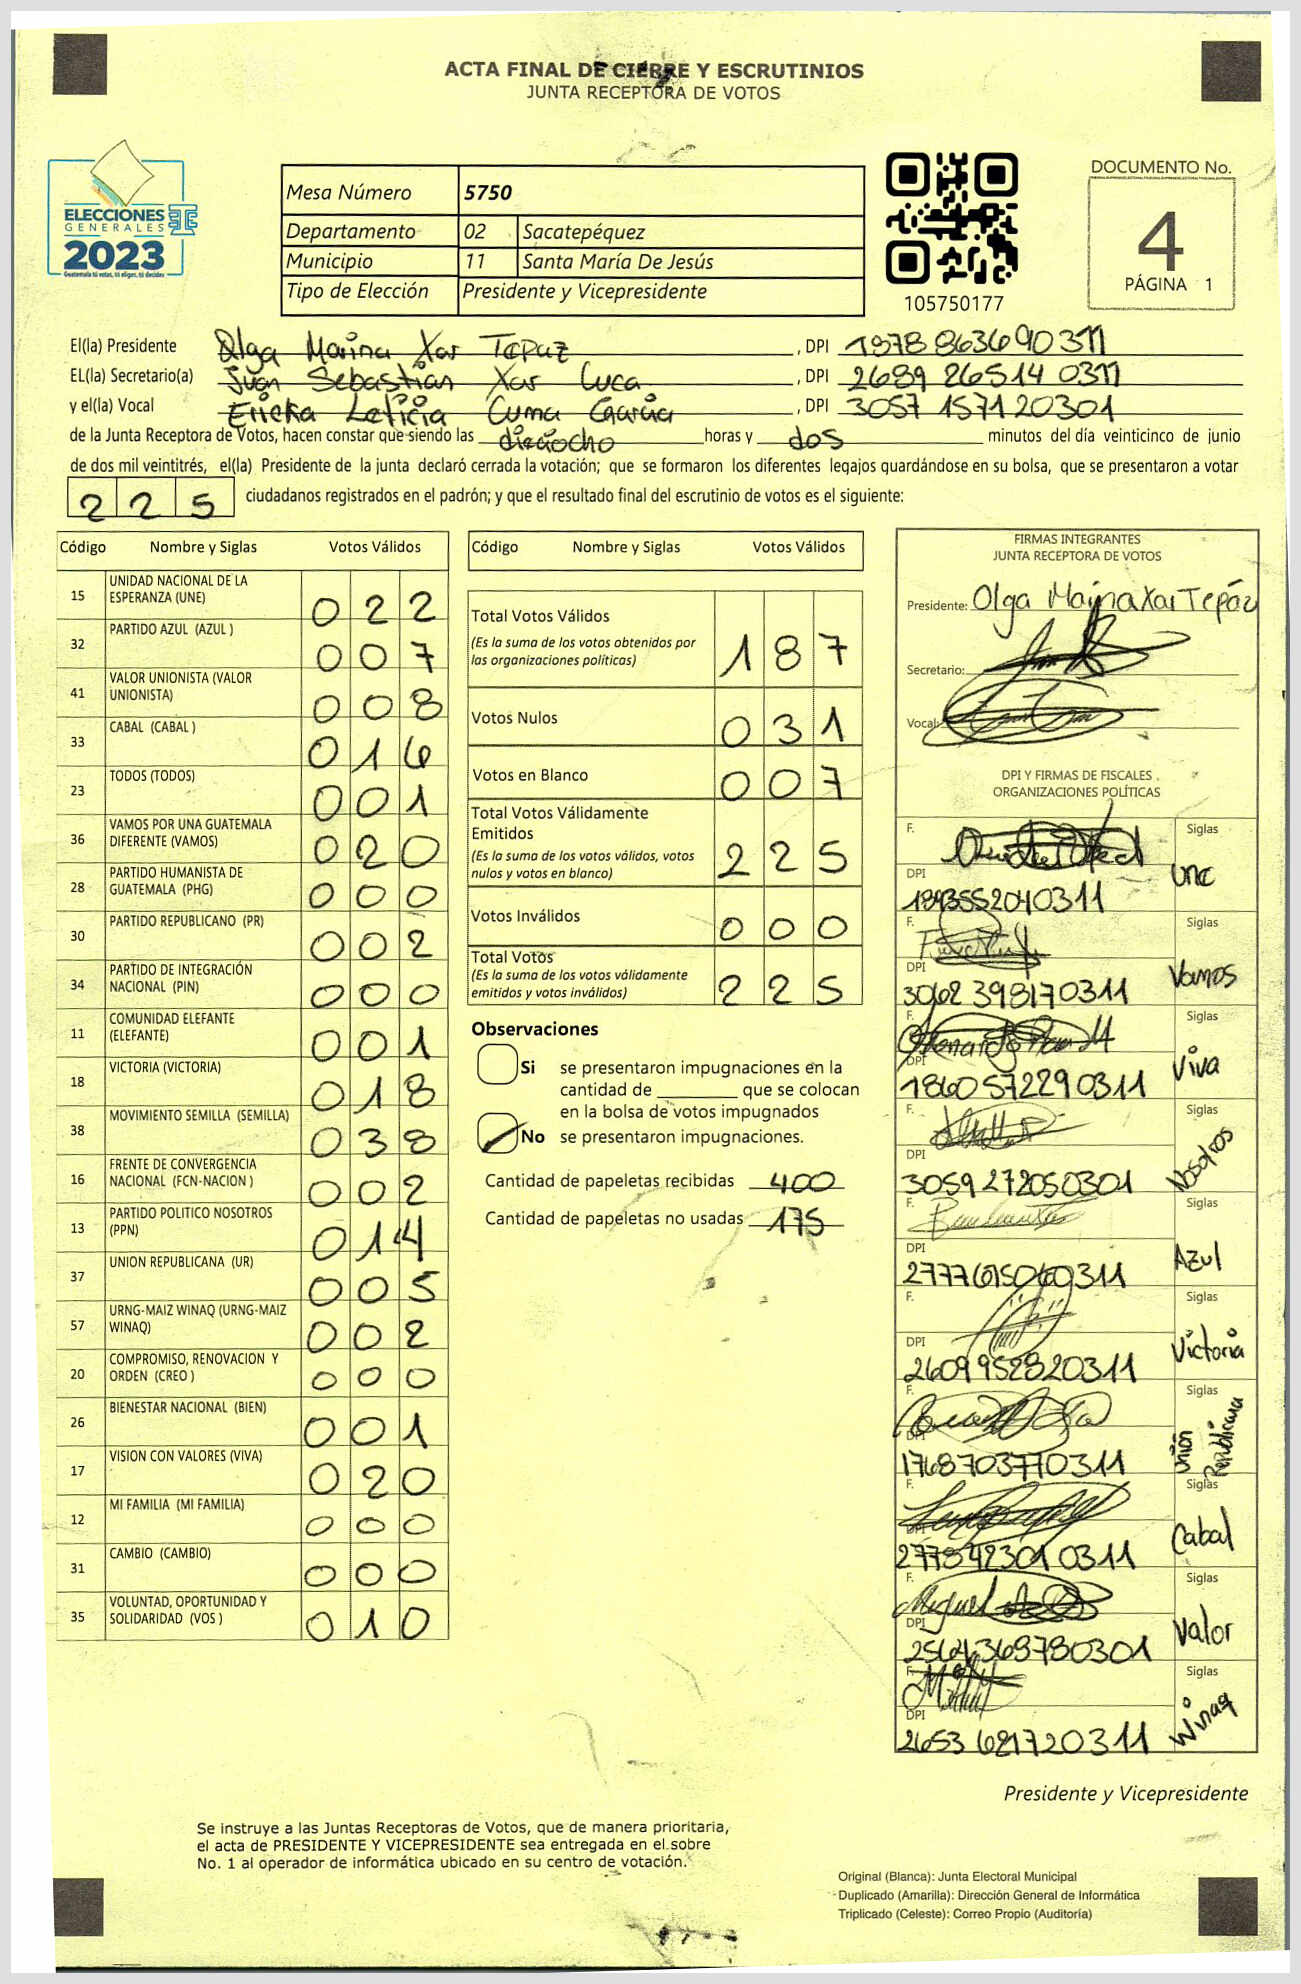 ACTA FINAL DE CIERRE Y ESCRUTINIOS
JUNTA RECEPTORA DE VOTOS
ELECCIONES
GENERALES
2023
Guatemala tú votas, tú eliges, tú decides
Mesa Número 5750
Departamento 02 Sacatepéquez
Municipio 11 Santa María De Jesús
Tipo de Elección Presidente y Vicepresidente
105750177
DOCUMENTO No.
4
PÁGINA 1
El(la) Presidente Olga Marina Xar Tepaz, DPI 1978 86369 0311
EL(la) Secretario(a) Juan Sebastián Xar Luca, DPI 2689 26514 0311
y el(la) Vocal Ericka Leticia Cuma García, DPI 3057 15712 0301
de la Junta Receptora de Votos, hacen constar que siendo las dieciocho horas y dos minutos del día veinticinco de junio
de dos mil veintitrés, el(la) Presidente de la junta declaró cerrada la votación; que se formaron los diferentes legajos guardándose en su bolsa, que se presentaron a votar
225 ciudadanos registrados en el padrón; y que el resultado final del escrutinio de votos es el siguiente:
Código Nombre y Siglas Votos Válidos
15 UNIDAD NACIONAL DE LA ESPERANZA (UNE) 022
32 PARTIDO AZUL (AZUL ) 007
41 VALOR UNIONISTA (VALOR UNIONISTA) 008
33 CABAL (CABAL ) 016
23 TODOS (TODOS) 001
36 VAMOS POR UNA GUATEMALA DIFERENTE (VAMOS) 020
28 PARTIDO HUMANISTA DE GUATEMALA (PHG) 000
30 PARTIDO REPUBLICANO (PR) 002
34 PARTIDO DE INTEGRACIÓN NACIONAL (PIN) 000
11 COMUNIDAD ELEFANTE (ELEFANTE) 001
18 VICTORIA (VICTORIA) 018
38 MOVIMIENTO SEMILLA (SEMILLA) 038
16 FRENTE DE CONVERGENCIA NACIONAL (FCN-NACION ) 002
13 PARTIDO POLITICO NOSOTROS (PPN) 014
37 UNION REPUBLICANA (UR) 005
57 URNG-MAIZ WINAQ (URNG-MAIZ WINAQ) 002
20 COMPROMISO, RENOVACION Y ORDEN (CREO ) 000
26 BIENESTAR NACIONAL (BIEN) 001
17 VISION CON VALORES (VIVA) 020
12 MI FAMILIA (MI FAMILIA) 000
31 CAMBIO (CAMBIO) 000
35 VOLUNTAD, OPORTUNIDAD Y SOLIDARIDAD (VOS ) 010
Código Nombre y Siglas Votos Válidos
Total Votos Válidos 187
(Es la suma de los votos obtenidos por
las organizaciones políticas)
Votos Nulos 031
Votos en Blanco 007
Total Votos Válidamente
Emitidos 225
(Es la suma de los votos válidos, votos
nulos y votos en blanco)
Votos Inválidos 000
Total Votos 225
(Es la suma de los votos válidamente
emitidos y votos inválidos)
Observaciones
Si se presentaron impugnaciones en la
cantidad de ________ que se colocan
en la bolsa de votos impugnados
No se presentaron impugnaciones.
Cantidad de papeletas recibidas 400
Cantidad de papeletas no usadas 175
FIRMAS INTEGRANTES
JUNTA RECEPTORA DE VOTOS
Presidente: Olga Marina Xar Tepáz
Secretario:
Vocal:
DPI Y FIRMAS DE FISCALES
ORGANIZACIONES POLÍTICAS
F. Siglas
DPI UNE
F. Siglas
DPI Vamos
3062 39817 0311
F. Siglas
DPI Viva
1860 57229 0311
F. Siglas
DPI Nosotros
3059 27205 0301
F. Siglas
DPI Azul
F. Siglas
DPI Victoria
2609 95282 0311
F. Siglas
DPI Unión Republicana
1768 70377 0311
F. Siglas
DPI Cabal
2778 42301 0311
F. Miguel Siglas
DPI Valor
2564 36978 0301
F. Siglas
DPI Winaq
2653 62172 0311
Presidente y Vicepresidente
Se instruye a las Juntas Receptoras de Votos, que de manera prioritaria,
el acta de PRESIDENTE Y VICEPRESIDENTE sea entregada en el sobre
No. 1 al operador de informática ubicado en su centro de votación.
Original (Blanca): Junta Electoral Municipal
Duplicado (Amarilla): Dirección General de Informática
Triplicado (Celeste): Correo Propio (Auditoría)